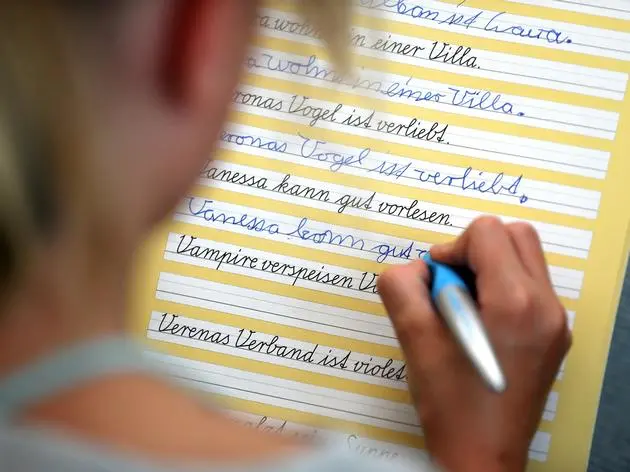 ist Laura.
in einer Villa.
in einer Villa.
Vogel ist verliebt.
Vogel ist verliebt.
Vanessa kann gut vorlesen.
Vanessa kann gut
Vampire verspeisen
Verenas Verband ist violet.